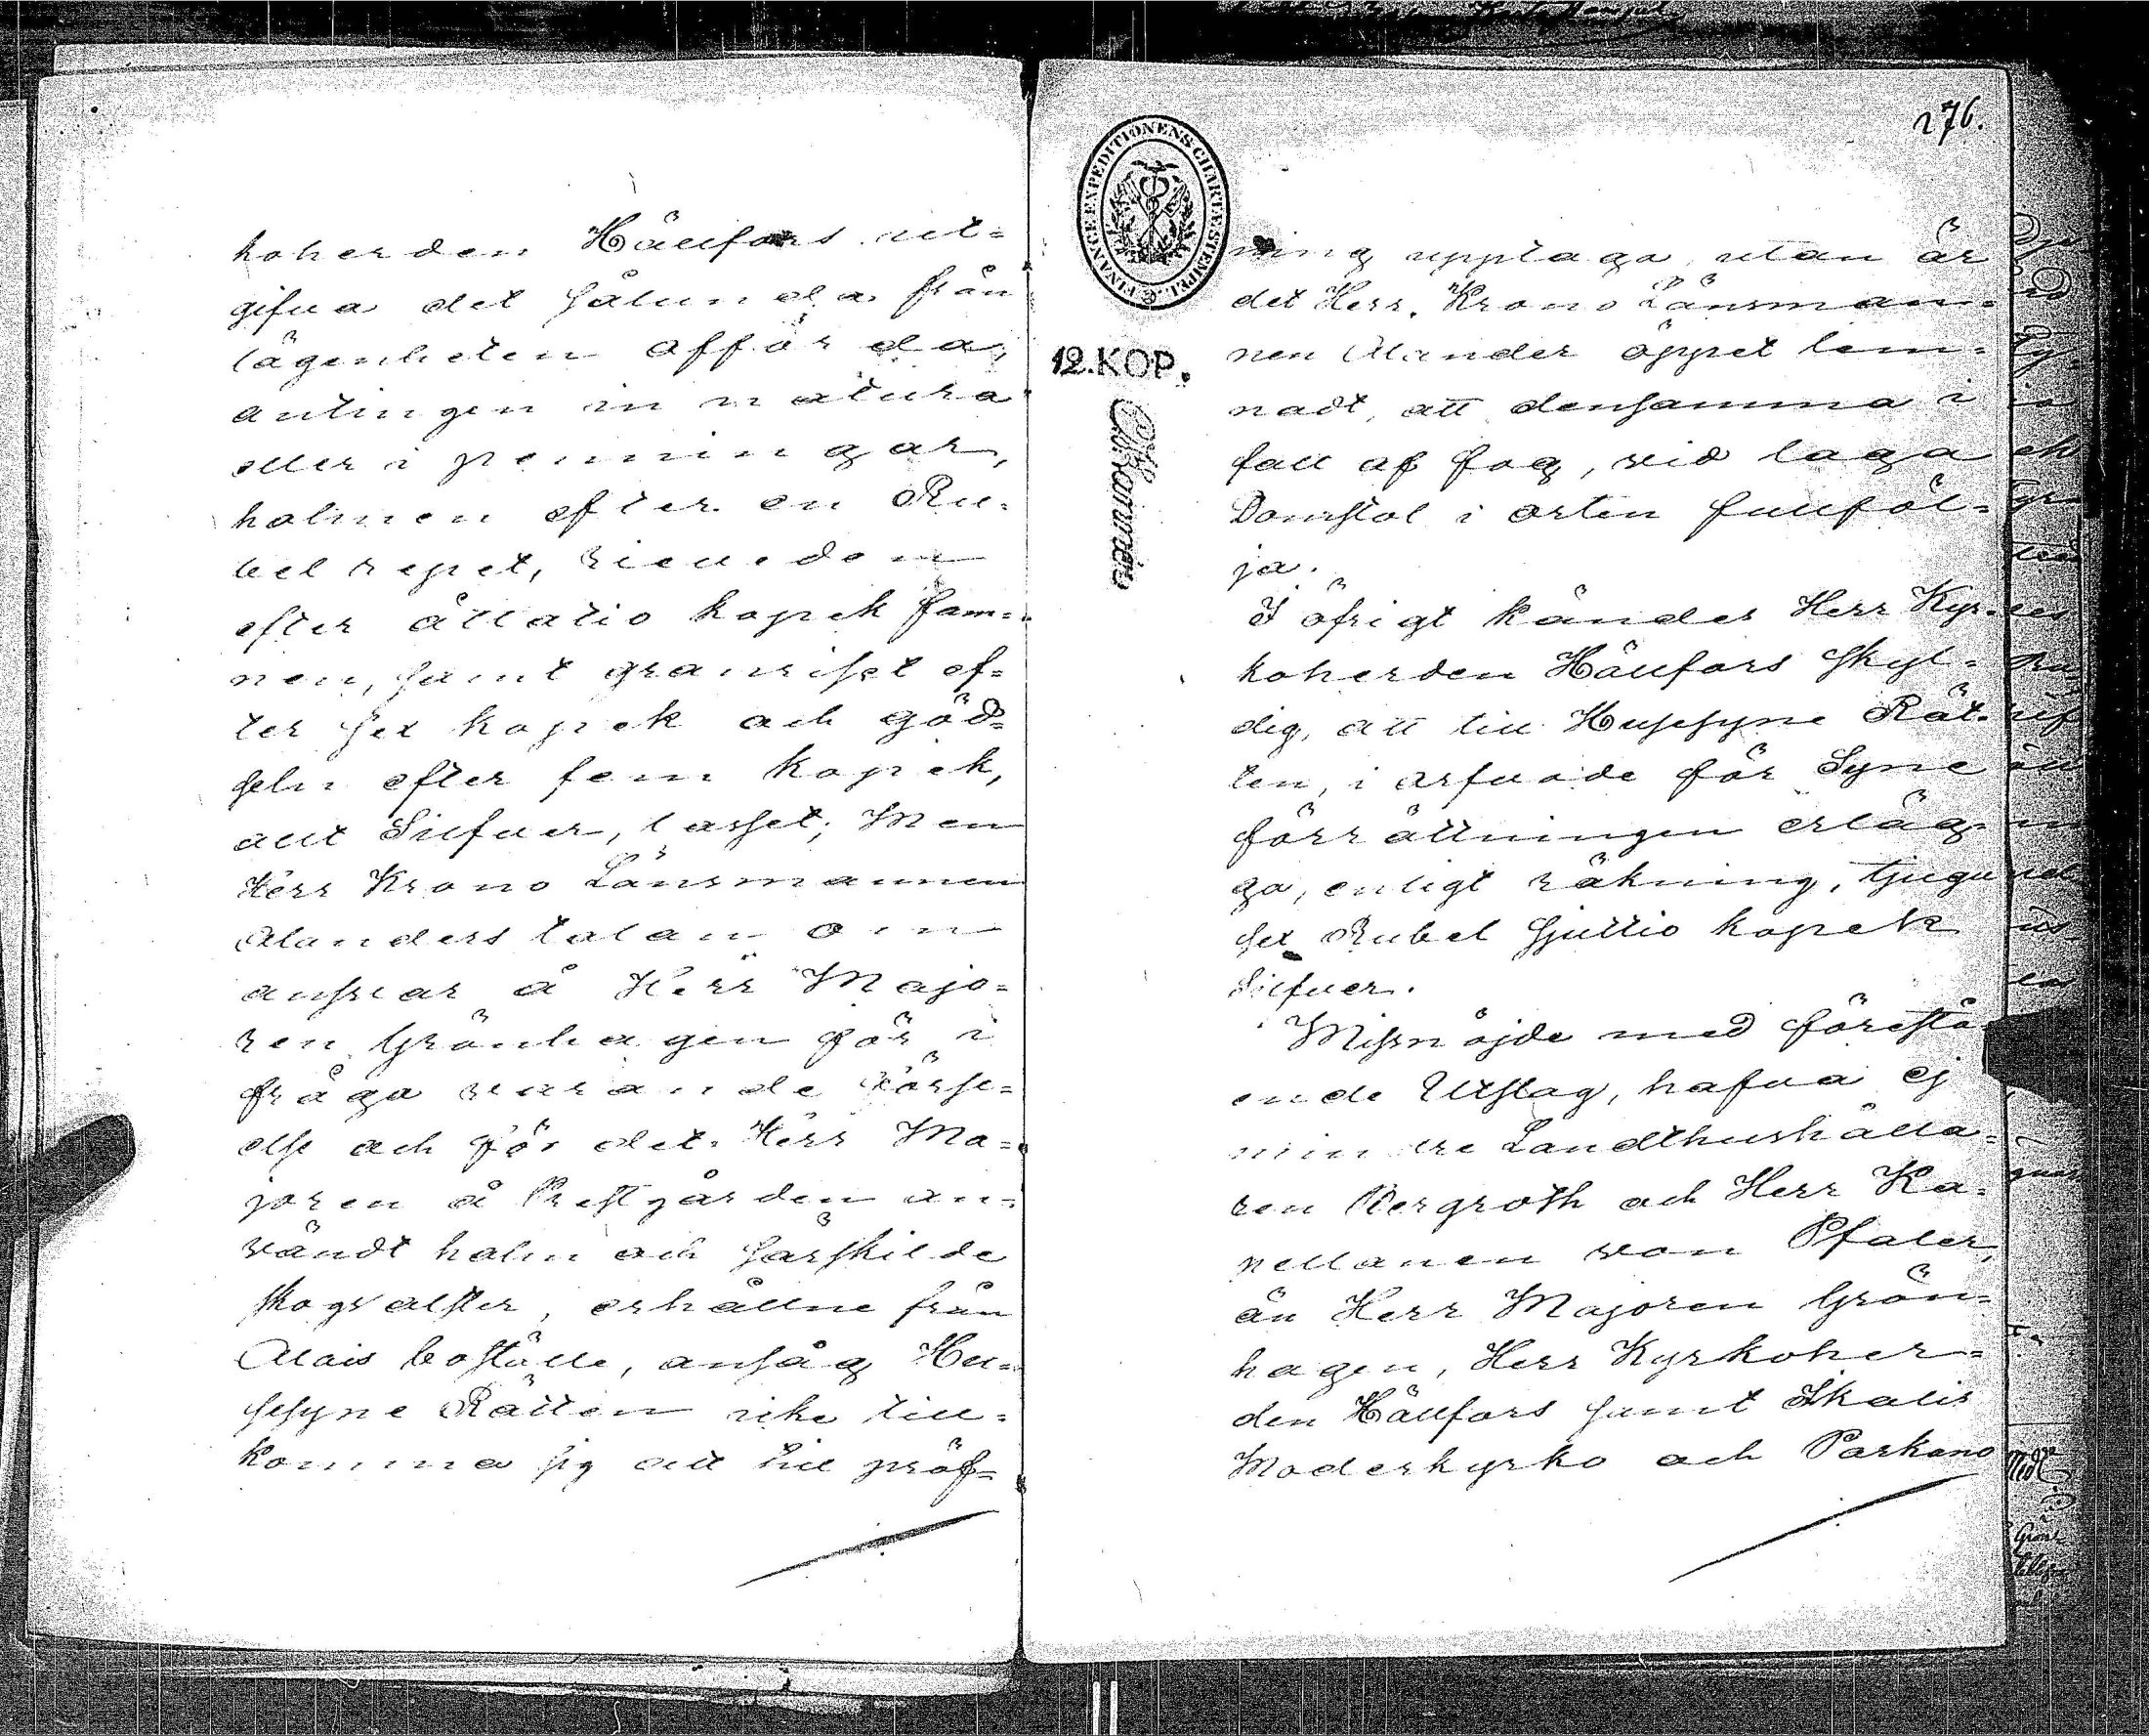 koherden Hällfors ut=
gifva det sålunda från
lägenheten afförda,
antingen in natura
eller i penningar,
halmen efter en Ru=
bel repet, 
efter åttatio kopek fam=
nen, samt granriset ef=
ter sex kopek och göd=
seln efter fem kopek,
allt Silfver, lasset; Men
Herr Krono Länsmannen
Alanders talan om
ansvar å Herr Majo=
ren Grönhagen för i
fråga varande förse=
else och för det Herr Ma=
joren å Prestgården an=
vändt halm och särskilde
skogsalster, erhållne från
Alais boställe, ansåg Hu=
ssyne Rätten icke till=
komma sig att till pröf=
276.
FINANCE EXPEDITIONENS CHARTÆ STEMPEL
12. KOP.
ning upptaga, utan är
det Herr Krono Länsman=
nen Alander öppet lem=
nadt, att densamma i
fall af fog, vid laga
Domstol i orten fullföl=
ja.
I öfrigt kändes Herr Kyr=
koherden Hällfors skyl=
dig, att till Hussyne Rät=
ten, i arfvode för Syne
förrättningen erläg=
ga, enligt räkning, tjugu
sex Rubel sjuttio kopek
Silfver.
Missnöjde med förestå=
ende Utslag, hafva ej
mindre Landthushålla=
ren Bergroth och Herr Ka=
pellanen von Pfaler,
än Herr Majoren Grön=
hagen, Herr Kyrkoher=
den Hällfors samt Ikalis
Moderkyrko och Parkano